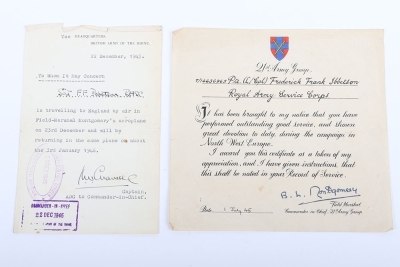 HEADQUARTERS
BRITISH ARMY OF THE RHINE
22 December, 1945.
To Whom It May Concern
is travelling to England by air in
Field-Marshal Montgomery's aeroplane
on 23rd December and will be
returning in the same plane on about
the 3rd January 1946.
Captain,
ADC to Commander-in-Chief.
22 DEC 1945
21st Army Group
Frederick Frank Ibbetson
Royal Army Service Corps
It has been brought to my notice that you have
performed outstanding good service, and shown
great devotion to duty, during the campaign in
North West Europe.
I award you this certificate as a token of my
appreciation, and I have given instructions that
this shall be noted in your Record of Service.
B. L. Montgomery
Field Marshal
Date
45
Commander in Chief, 21st Army Group